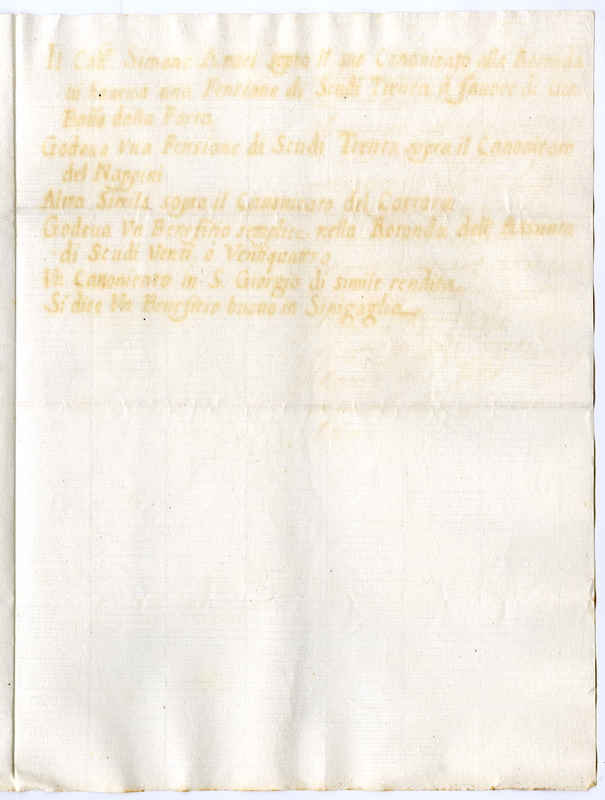 Il Can.co Simone sopra il suo Canonicato alla Rotonda
in haveva una Pensione di Scudi Trenta à favore di
dalla Porta
Godeva Vna Pensione di Scudi Trenta sopra il Canonicato
del Nappini
Altra Simile sopra il Canonicato del
Godeva Vn Benefitio semplice nella Rotonda dell' Assunta
di Scudi Venti ò Ventiquattro
Vn Canonicato in S. Giorgio di simile rendita
Si dice Vn Benefitio buono in Sinigaglia